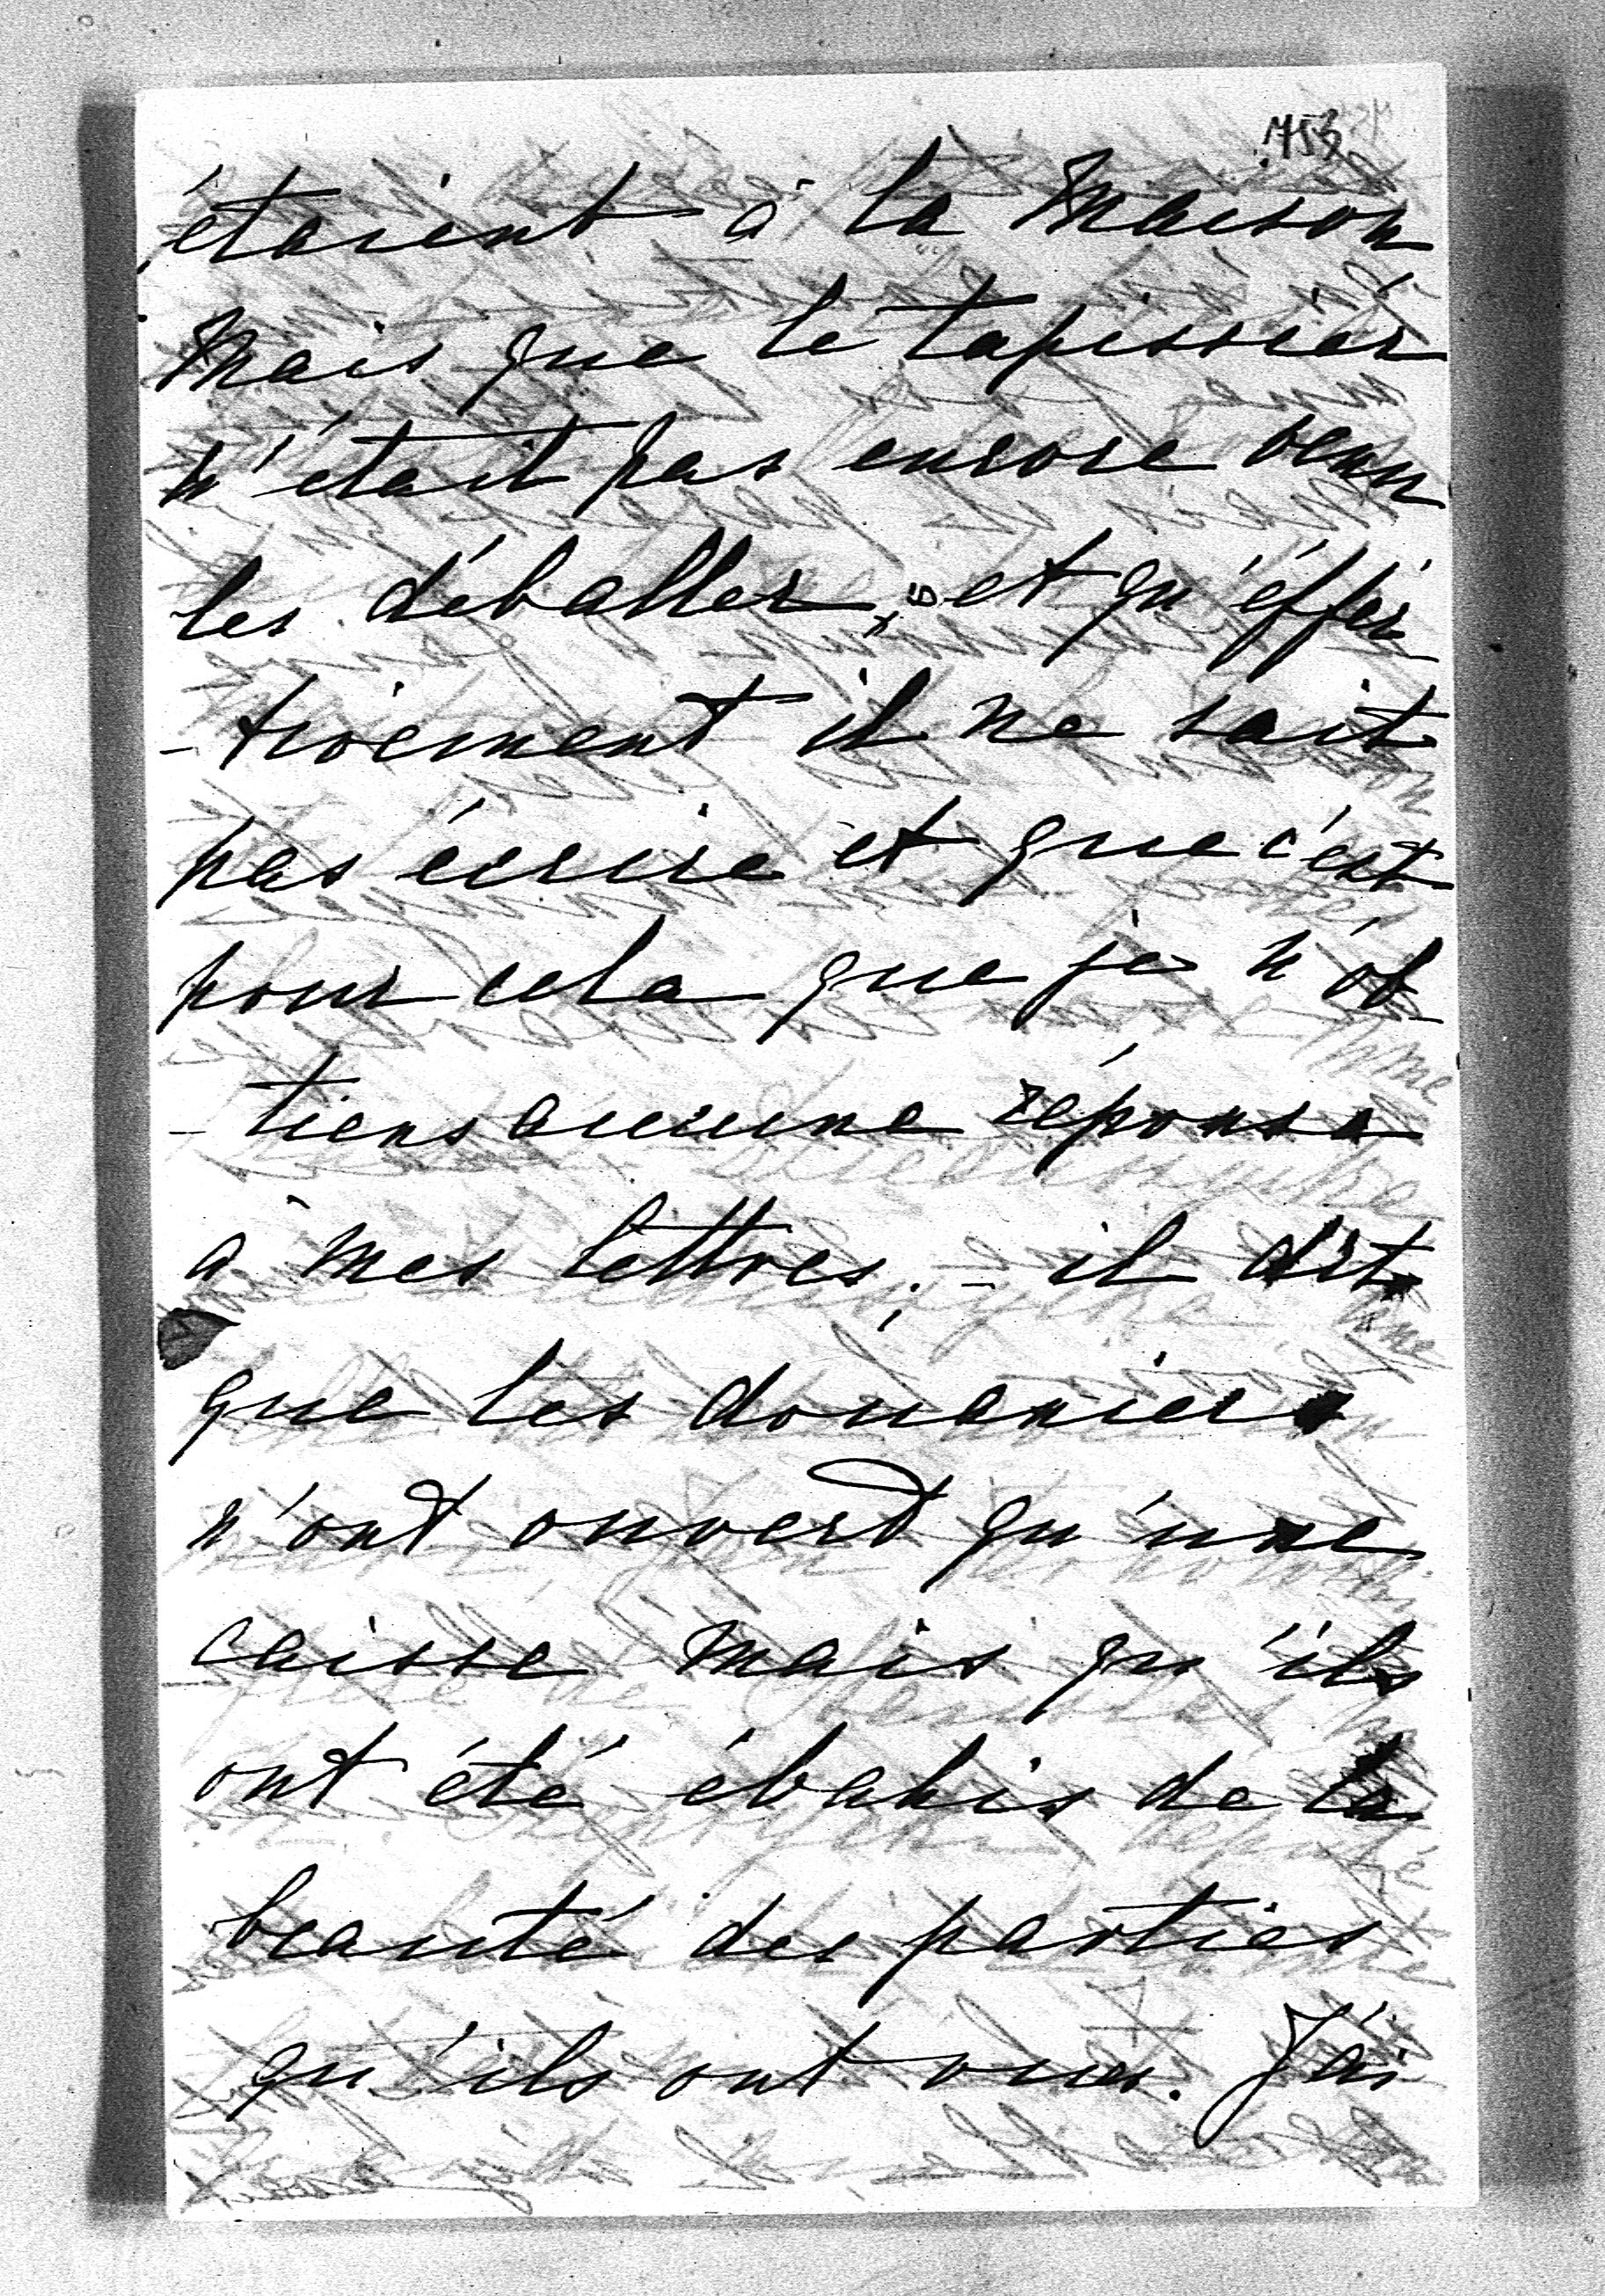 753
étaient à la maison
mais que le tapissier
n'était pas encore venu
les déballer, et qu'éffec
-tivement il ne sait
pas écrire et que c'est
pour cela que je n'ob
-tiens aucune réponse
à mes lettres; - il dit
que les douaniers
n'ont ouvert qu'une
caisse mais qu'ils
ont été ébahis de la
beauté des parties
qu'ils ont vues. J'ai